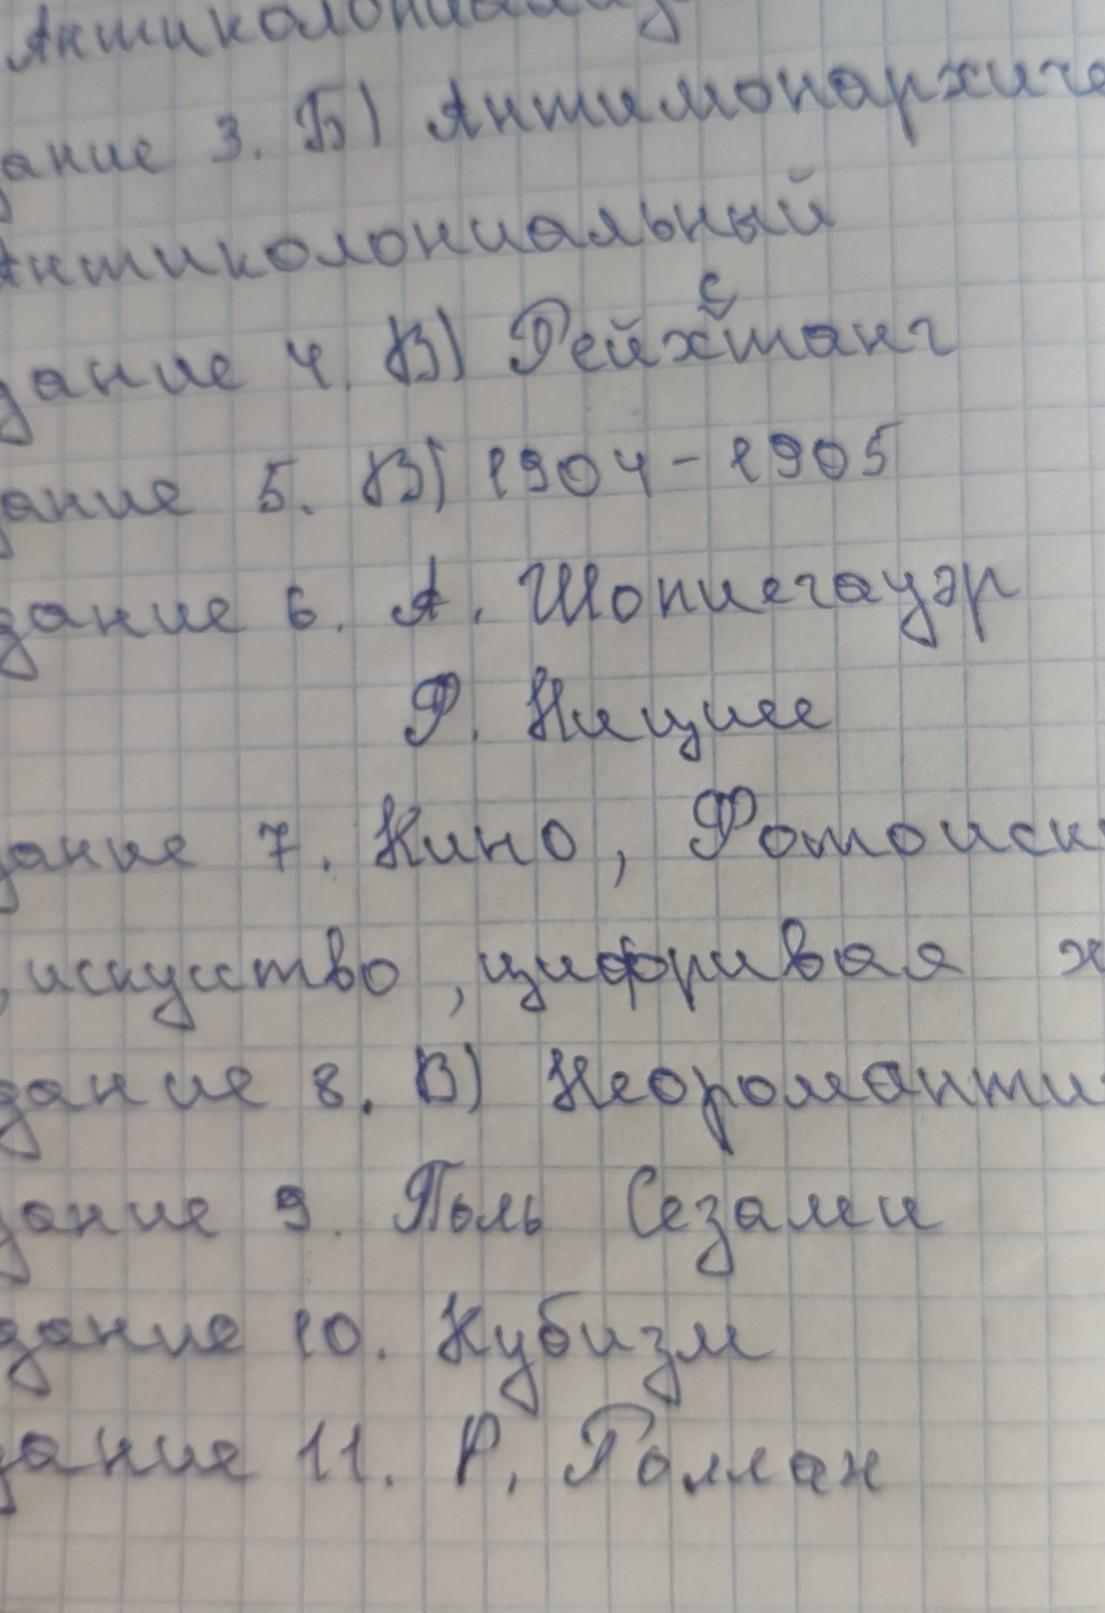 Антиколониализ
ание 3. Б) Антимонархиче
Антиколониальный
дание 4. В) Рейхстанг
дание 5. В) 1904-1905
дание 6. А. Шопиегауэр
Ф. Ницшее
дание 7. Кино, Фотоиск
, искусство, цифривая х
дание 8. В) Неороманти
дание 9. Поль Сезами
дание 10. Кубизм
дание 11. Р. Роллан